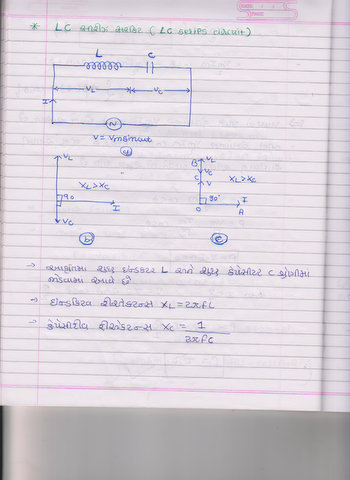 * LC સીરીઝ સરકિટ ( LC series circuit)
L C
VL VC
I
V = Vm sinωt
(a)
VL
XL>XC
90
I
VC
(b)
B VL
VC
C
V
XL>XC
90°
I
O
A
(c)
→ આકૃતિમાં શુદ્ધ ઇન્ડક્ટર L અને શુદ્ધ કેપેસિટર C શ્રેણીમાં
જોડવામાં આવે છે
→ ઇન્ડક્ટિવ રીએક્ટન્સ XL = 2πfL
→ કેપેસીટીવ રીએક્ટન્સ XC = 1
2πfC